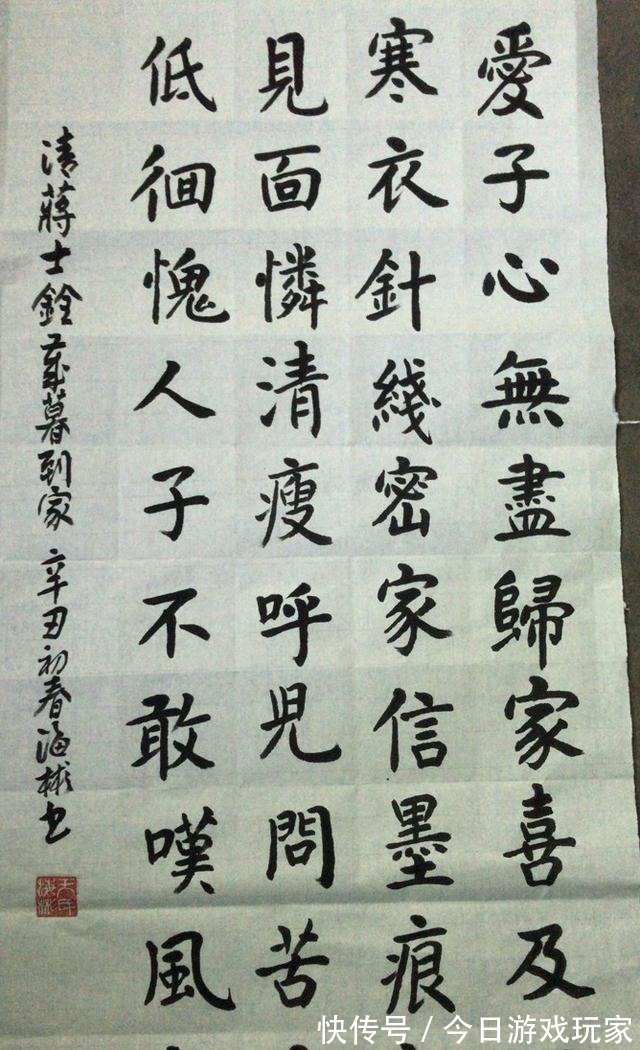 愛子心無盡歸家喜及
寒衣針綫密家信墨痕
見面憐清瘦呼児問苦
低徊愧人子不敢嘆風
清蔣士銓歲暮到家 辛丑初春海彬書
快传号/今日游戏玩家